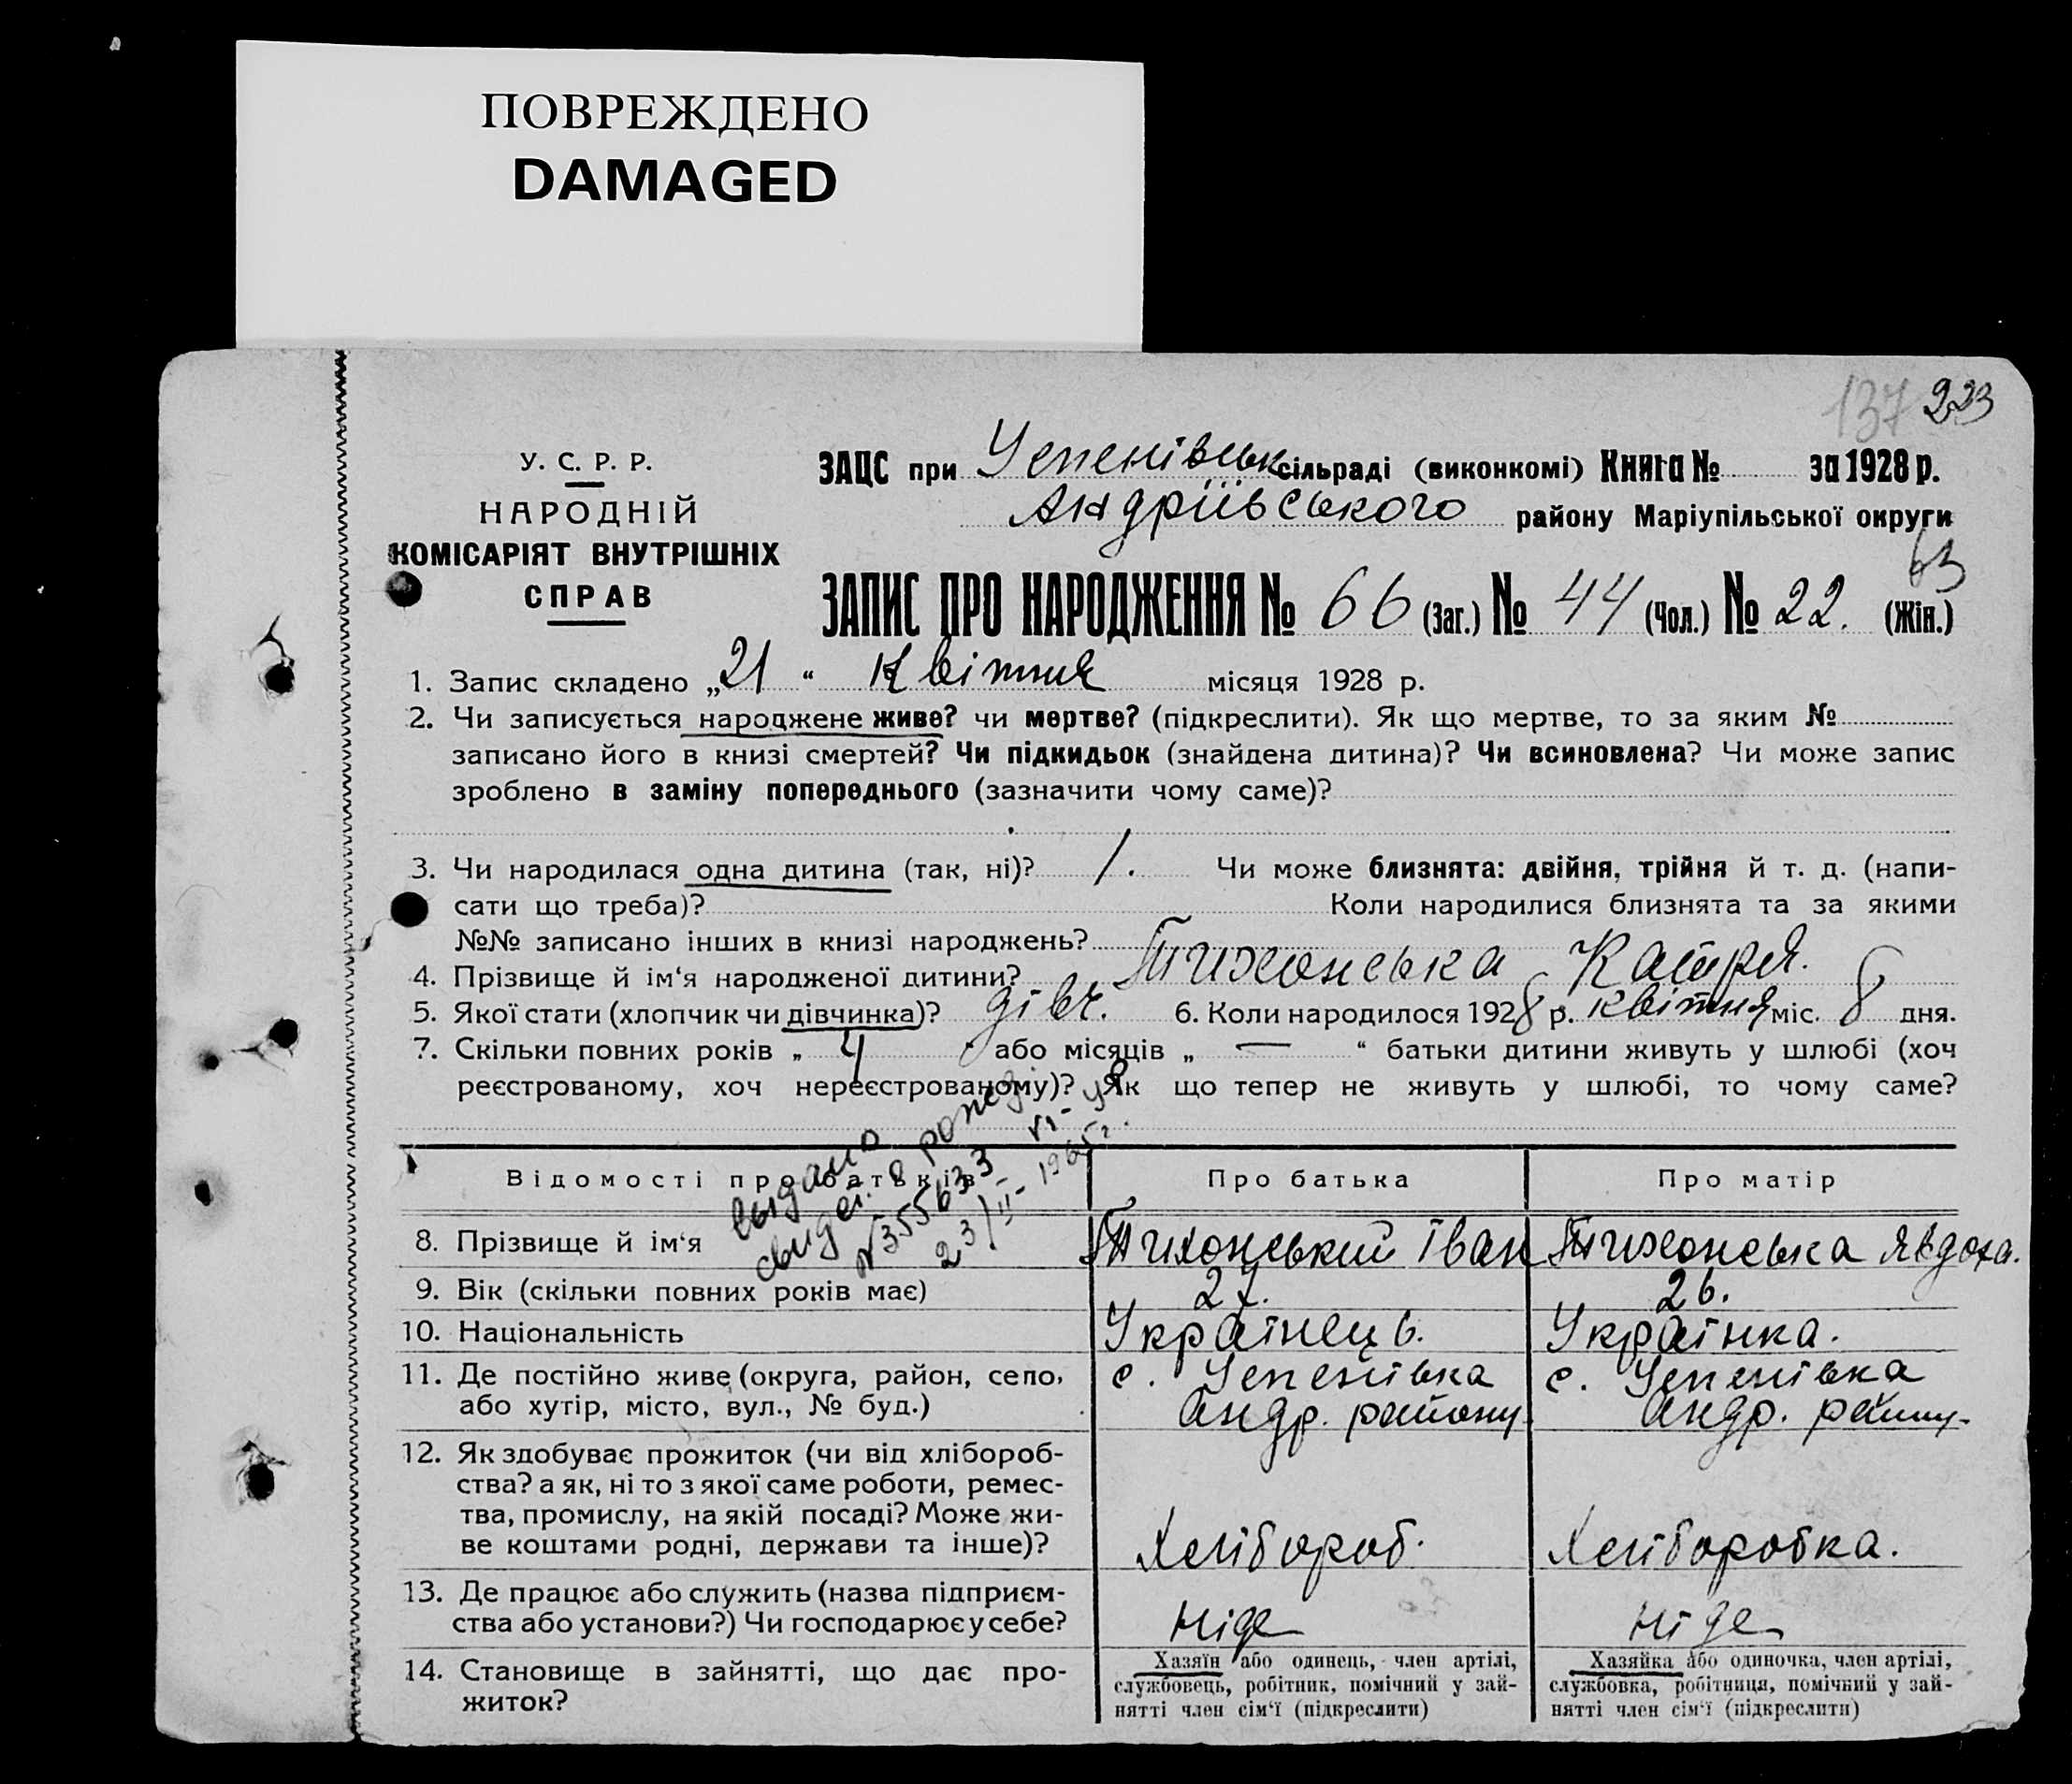 ПОВРЕЖДЕНО
DAMAGED
137 223
У. С. Р. Р.
НАРОДНІЙ
КОМІСАРІЯТ ВНУТРІШНІХ
СПРАВ
ЗАЦС при Успенівськ сільраді (виконкомі) Книга № за 1928 р.
Андріївського району Маріупільської округи
63
ЗАПИС ПРО НАРОДЖЕННЯ № 66 (Заг.) № 44 (Чол.) № 22. (Жін.)
1. Запис складено „21“ Квітня місяця 1928 р.
2. Чи записується народжене живе? чи мертве? (підкреслити). Як що мертве, то за яким №
записано його в книзі смертей? Чи підкидьок (знайдена дитина)? Чи всиновлена? Чи може запис
зроблено в заміну попереднього (зазначити чому саме)?
3. Чи народилася одна дитина (так, ні)? 1. Чи може близнята: двійня, трійня й т. д. (напи-
сати що треба)? Коли народилися близнята та за якими
№№ записано інших в книзі народжень?
4. Прізвище й ім‘я народженої дитини? Тихонська Катря.
5. Якої стати (хлопчик чи дівчинка)? дівч. 6. Коли народилося 1928 р. квітня міс. 8 дня.
7. Скільки повних років „ 4 “ або місяців „ — “ батьки дитини живуть у шлюбі (хоч
реєстрованому, хоч нереєстрованому)? Як що тепер не живуть у шлюбі, то чому саме?
выдано
свидет. о рожд.
№355633
23/II-1965г.
Відомості про батьків Про батька Про матір
8. Прізвище й ім‘я Тихонський Іван Тихонська Явдоха.
9. Вік (скільки повних років має) 27. 26.
10. Національність Українець. Українка.
11. Де постійно живе (округа, район, село, с. Успенівка с. Успенівка
або хутір, місто, вул., № буд.) Андр. району. Андр. району.
12. Як здобуває прожиток (чи від хлібороб-
ства? а як, ні то з якої саме роботи, ремес-
тва, промислу, на якій посаді? Може жи-
ве коштами родні, держави та інше)? Хлібороб. Хліборобка.
13. Де працює або служить (назва підприєм-
ства або установи?) Чи господарює у себе? Ніде Ніде
14. Становище в зайнятті, що дає про-
житок?
Хазяїн або одинець, член артілі,
службовець, робітник, помічний у зай-
нятті член сім‘ї (підкреслити)
Хазяйка або одиночка, член артілі,
службовка, робітниця, помічний у зай-
нятті член сім‘ї (підкреслити)